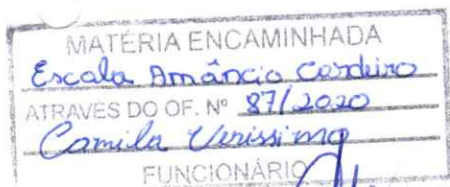 MATÉRIA ENCAMINHADA
Escola Amâncio Cordeiro
ATRAVÉS DO OF. Nº 87/2020
Camila Verissimo
FUNCIONÁRIO